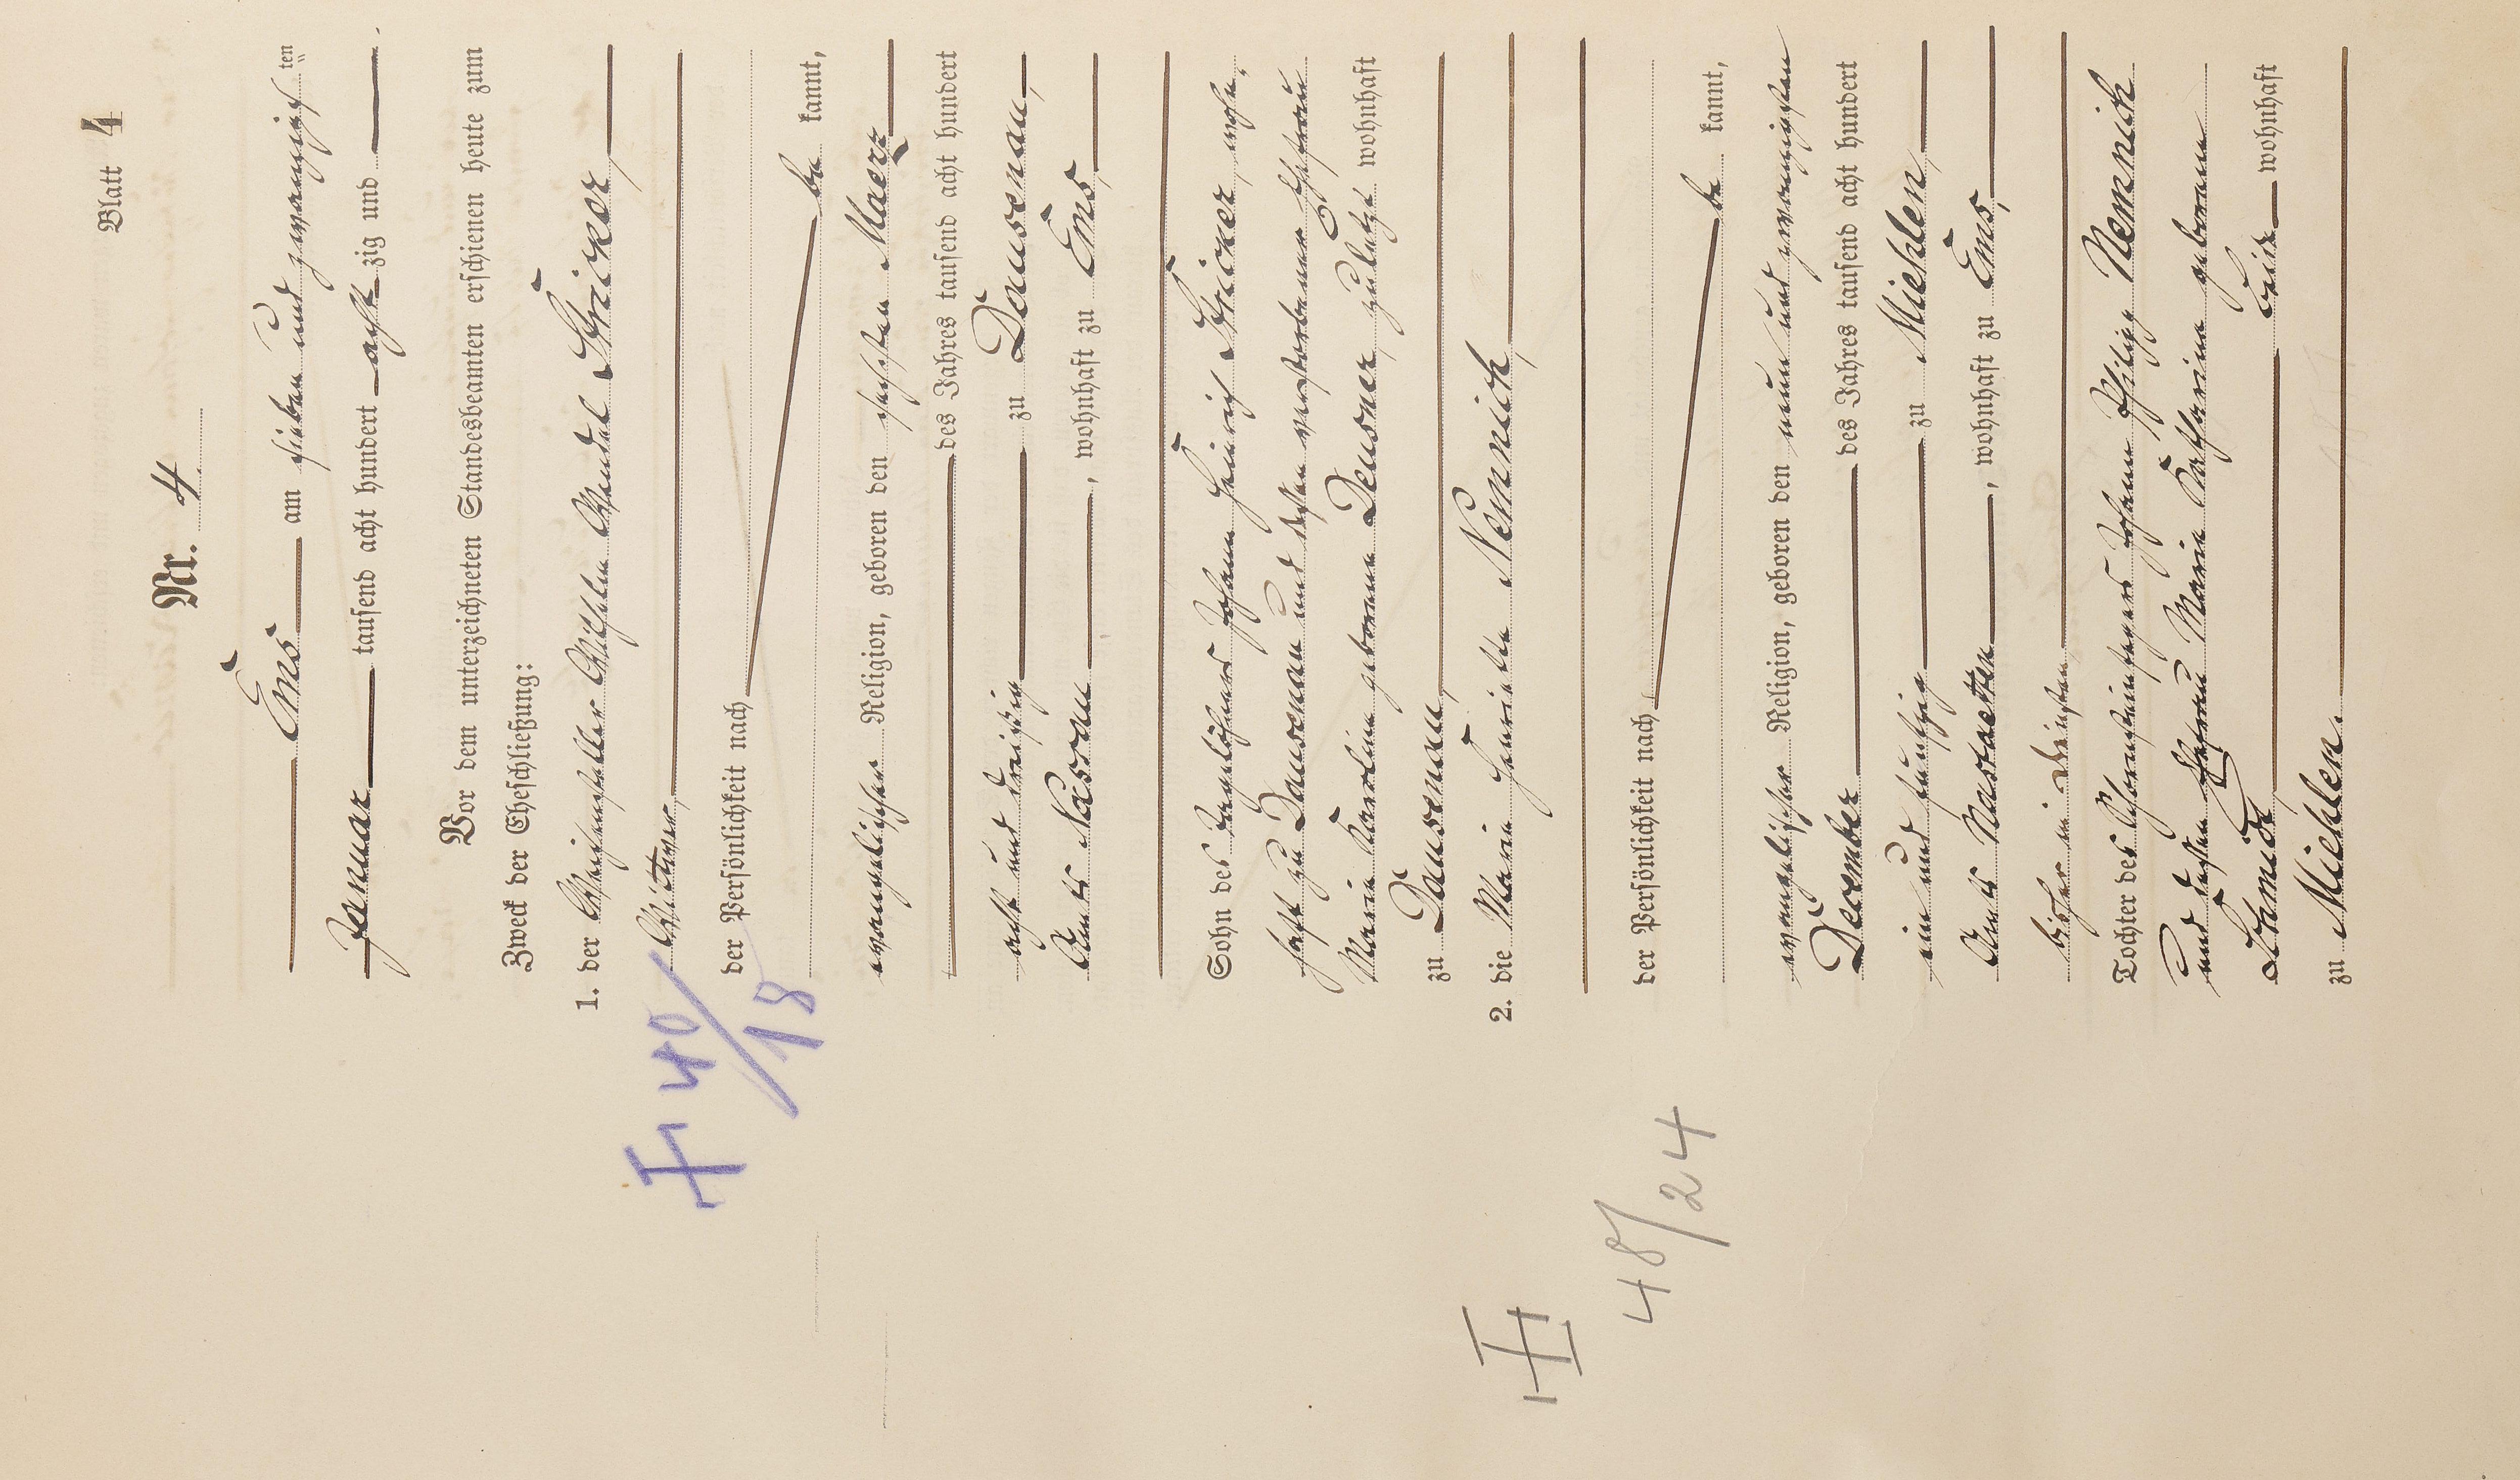 Blatt 4
Nr. 4.
Ems am sieben und zwanzigsten
Januar tausend acht hundert acht zig und
Vor dem unterzeichneten Standesbeamten erschienen heute zum
Zweck der Eheschließung:
1. der Weichensteller Wilhelm Wendel Stricker,
Wittwer,
der Persönlichkeit nach
be kannt,
evangelischer Religion, geboren den sechsten Maerz
des Jahres tausend acht hundert
acht und dreißig zu Dausenau,
Amts Nassau, wohnhaft zu Ems,
Sohn des Taglöhners Johann Heinrich Stricker, wohn-
haft zu Dausenau und dessen verstorbener Ehefrau
Maria Karoline geborene Deusner, zuletzt wohnhaft
zu Dausenau,
2. die Maria Henriette Nemnich,
der Persönlichkeit nach
be kannt,
evangelischer Religion, geboren den neun und zwanzigsten
December des Jahres tausend acht hundert
ein und fünfzig zu Miehlen,
Amts Nastaetten, wohnhaft zu Ems,
bisher in Diensten,
Tochter des Schornsteinfegers Johann Philipp Nemnich
und dessen Ehefrau Maria Katharina geborene
Schmidt beide wohnhaft
zu Miehlen.
I 40/18
II 48/24